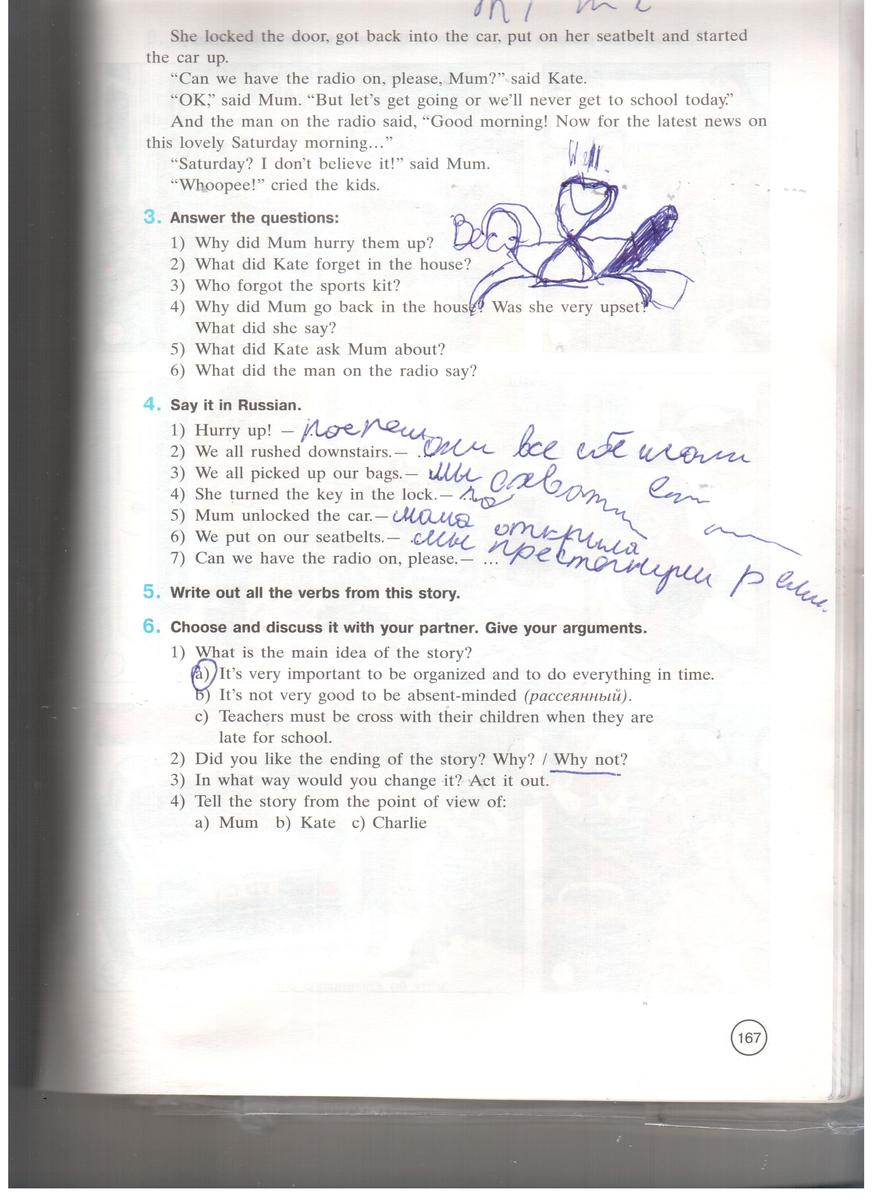 She locked the door, got back into the car, put on her seatbelt and started
the car up.
“Can we have the radio on, please, Mum?” said Kate.
“OK,” said Mum. “But let’s get going or we’ll never get to school today.”
And the man on the radio said, “Good morning! Now for the latest news on
this lovely Saturday morning…”
“Saturday? I don’t believe it!” said Mum.
“Whoopee!” cried the kids.
3. Answer the questions:
1) Why did Mum hurry them up?
2) What did Kate forget in the house?
3) Who forgot the sports kit?
4) Why did Mum go back in the house? Was she very upset?
What did she say?
5) What did Kate ask Mum about?
6) What did the man on the radio say?
4. Say it in Russian.
1) Hurry up! –
2) We all rushed downstairs.– все
3) We all picked up our bags.– мы
4) She turned the key in the lock.–
5) Mum unlocked the car.– мама открыла
6) We put on our seatbelts.– мы пристегнули
7) Can we have the radio on, please.– …
5. Write out all the verbs from this story.
6. Choose and discuss it with your partner. Give your arguments.
1) What is the main idea of the story?
a) It’s very important to be organized and to do everything in time.
b) It’s not very good to be absent-minded (рассеянный).
c) Teachers must be cross with their children when they are
late for school.
2) Did you like the ending of the story? Why? / Why not?
3) In what way would you change it? Act it out.
4) Tell the story from the point of view of:
a) Mum b) Kate c) Charlie
167